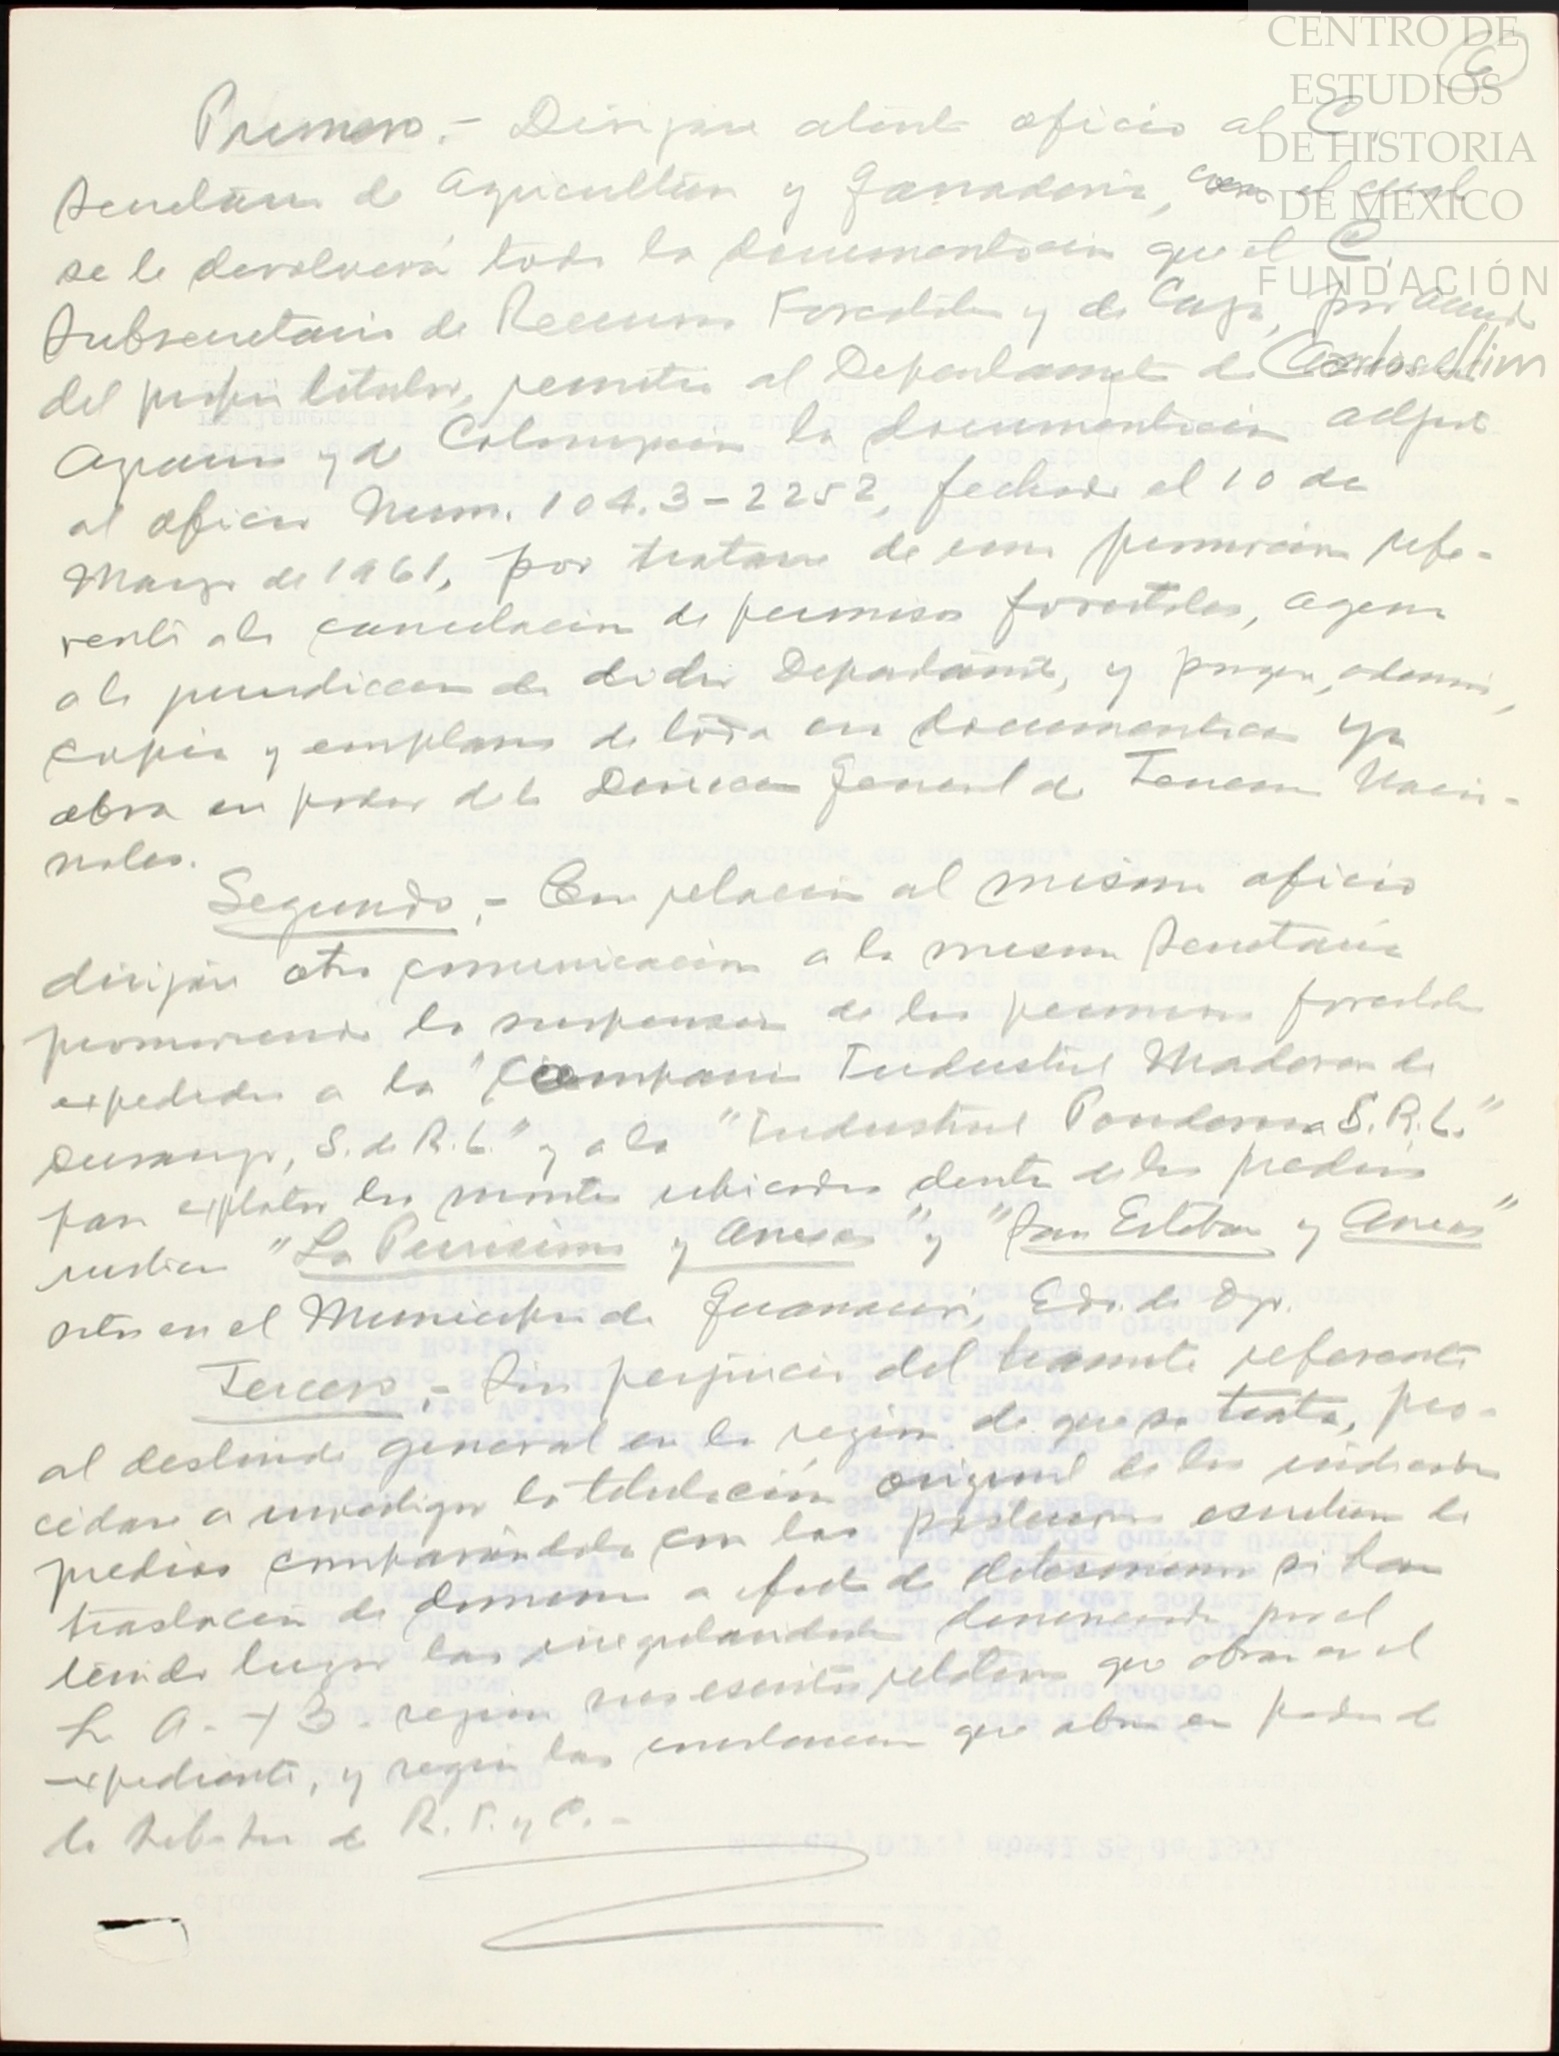 6
CENTRO DE
ESTUDIOS
DE HISTORIA
DE MÉXICO
FUNDACIÓN
Carlos Slim
Primero.- Dirijase atento oficio al C.
Secretario de Agricultura y Ganaderia, con el cual
se le devolverá toda la documentación que el C.
Subsecretario de Recursos Forestales y de Caza, por acuerdo
del propio titular, remitió al Departamento de Asuntos
Agrarios y de Colonización la documentación adjunta
al oficio Num. 104.3-2252, fechado el 10 de
Marzo de 1961, por tratarse de una promoción refe-
rente a la cancelación de permisos forestales, agena
a la jurisdicción de dicho Departamento, y porque, además,
copia y emplares de toda esa documentación ya
obra en poder de la Dirección General de Terrenos Nacio-
nales.
Segundo.- Con relación al mismo oficio
dirijase otra comunicación a la misma Secretaría
promoviendo la suspensión de los permisos forestales
expedidos a la "Compañia Industrial Maderera de
Durango, S. de R.L." y a la "Industrial Ponderosa S.R.L."
para explotar los montes ubicados dentro de los predios
rusticos "La Purisima y Anexos" y "San Esteban y Anexos"
sitos en el Municipio de Guanacevi, Edo. de Dgo.
Tercero.- Sin perjuicio del tramite referente
al deslinde general en la región de que se trata, pro-
cédase a investigar la titulación original de los indicados
predios comparándola con las posteriores escrituras de
traslación de dominio a efecto de determinar si han
tenido lugar las irregularidades denunciadas por el
L. A. y B. según sus escritos relativos que obran en el
expediente, y según las constancias que obran en poder de
la Sub. Sria de R. F. y C.-